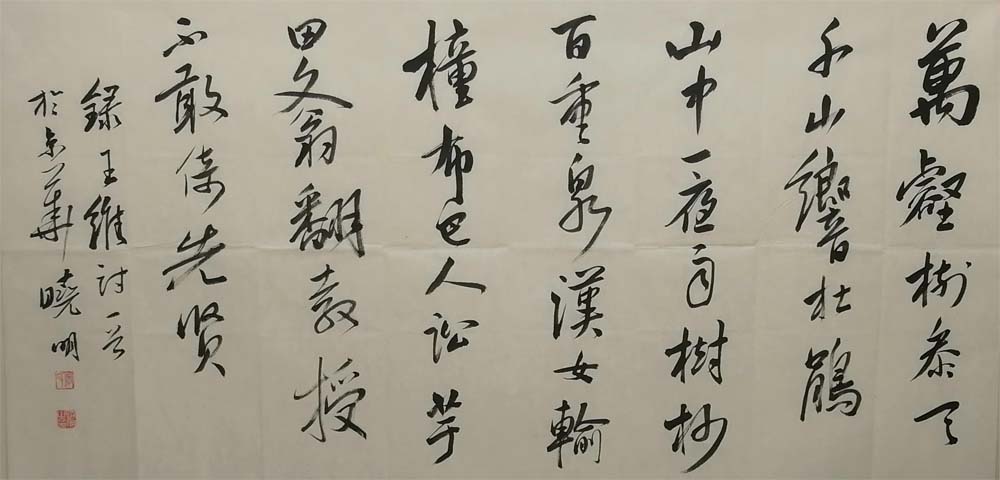 萬壑樹參天
千山響杜鵑
山中一夜雨樹杪
百重泉漢女輸
橦布巴人訟芋
田文翁翻教授
不敢倚先賢
錄王維詩一首
於京華曉明